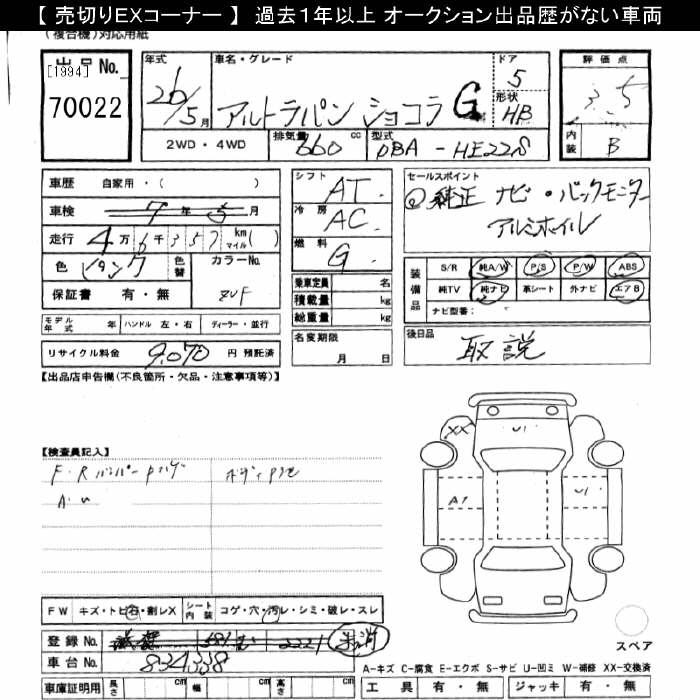 【 売切りEXコーナー 】 過去1年以上 オークション出品歴がない車両
(複合機)対応用紙
出品No.
[1994]
70022
年式
26/5月
車名・グレード
アルトラパン ショコラ G
ドア
5
形状
HB
2WD・4WD
排気量 660 cc
型式 DBA-HE22S
評価点
3.5
内装
B
車歴 自家用・( )
車検 7年5月
走行 4万6千357 km マイル( )
色 ピンク 色替
カラーNo.
ZUF
保証書 有・無
シフト AT
冷房 AC
燃料 G
乗車定員 名
積載量 kg
総重量 kg
セールスポイント
純正 ナビ・バックモニター
アルミホイル
装備品
S/R 純A/W P/S P/W ABS
純TV 純ナビ 革シート 外ナビ エアB
ナビ型番:
モデル年式 年 ハンドル 左・右 ディーラー・並行
リサイクル料金 9,070 円 預託済
名変期限
月 日
後日品
取説
【出品店申告欄(不良箇所・欠品・注意事項等)】
【検査員記入】
F・Rバンパー
A・U
ボディ
XX
U1
A1
U1
FW キズ・トビ・割レX
シート内装 コゲ・穴・汚レ・シミ・破レ・スレ
登録No. 2221
車台No. 834338
車庫証明用 長さ cm 幅 cm 高さ cm
スペア
A-キズ C-腐食 E-エクボ S-サビ U-凹ミ W-補修 XX-交換済
工具 有・無 ジャッキ 有・無